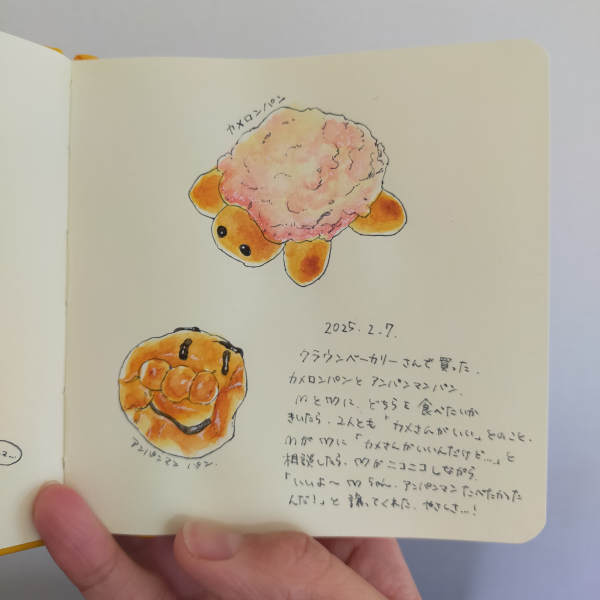 カメロンパン
2025.2.7.
クラウンベーカリーさんで買った。
カメロンパンと アンパンマンパン。
MとMに、どちらを食べたいか
きいたら、2人とも「カメさんがいい」とのこと。
MがMに「カメさんがいいんだけど…」と
相談したら、Mがニコニコしながら、
「いいよ〜Mちゃん、アンパンマンたべたかった
んだ!」と譲ってくれた。やさしさ…!
アンパンマン パン.